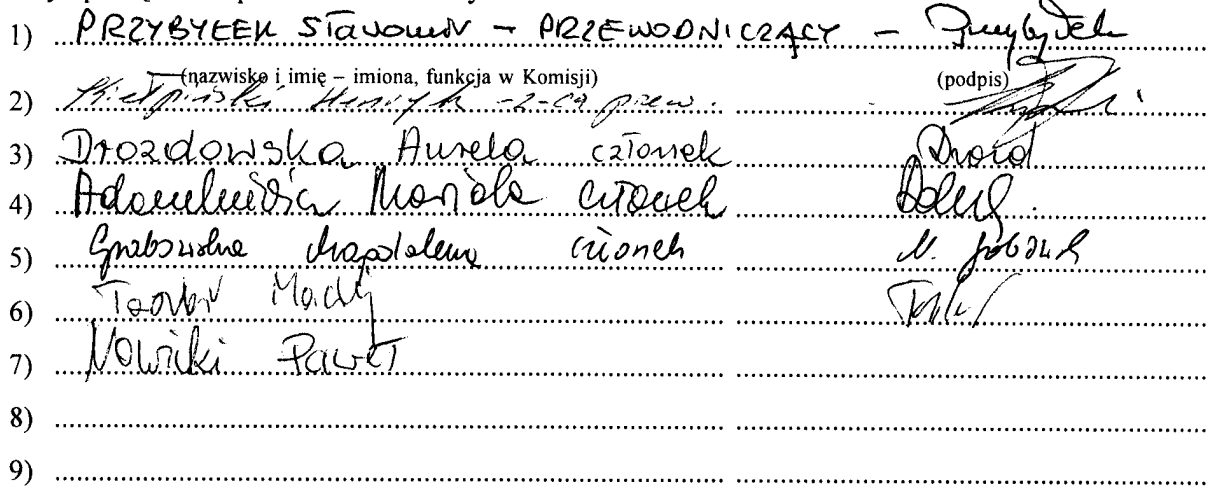 1) PRZYBYŁEK Sławomir – PRZEWODNICZĄCY – Przybyłek
(nazwisko i imię – imiona, funkcja w Komisji) (podpis)
2) Kiełpiński Henryk - z-ca przew.
3) Drozdowska Aurela członek Drozd
4) Mariola członek
5) Grabowska Magdalena członek M. Grabowsk
6) Maciej
7) Nowicki Paweł
8)
9)